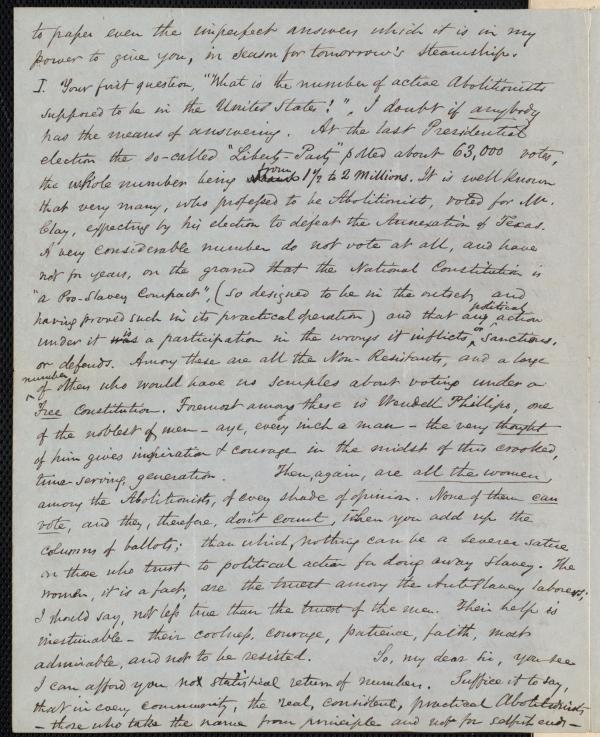 to paper even the imperfect answers which it is in my
power to give you, in season for tomorrow's steamship.
I. Your first question, "What is the number of active Abolitionists
supposed to be in the United States?", I doubt if anybody
has the means of answering. At the last Presidential
election the so-called "Liberty-Party" polled about 63,000 votes,
the whole number being from 1 1/2 to 2 Millions. It is well known
that very many, who professed to be Abolitionist, voted for Mr.
Clay, expecting by his election to defeat the Annexation of Texas.
A very considerable number do not vote at all, and have
not for years, on the ground that the National Constitution is
"a Pro-Slavery Compact", (so designed to be in the outset, and
having proved such in its practical operation) and that any political action
under it is a participation in the wrongs it inflicts, or sanctions,
or defends. Among these are all the Non-Resistants, and a large
number of others who would have no scruples about voting under a
Free Constitution. Foremost among these is Wendell Phillips, one
of the noblest of men - aye, every inch a man - the very thought
of him gives inspiration & courage in the midst of this crooked,
time-serving, generation. Then, again, are all the women,
among the Abolitionists, of every shade of opinion. None of them can
vote, and they, therefore, don't count, when you add up the
columns of ballots; than which, nothing can be a severer satire
on those who trust to political action for doing away Slavery. The
women, it is a fact, are the truest among the Anti Slavery laborers;
I should say, not less true than the truest of the men. Their help is
inestimable - their coolness, courage, patience, faith, most
admirable, and not to be resisted. So, my dear Sir, you see
I can afford you no statistical return of numbers. Suffice it to say,
that in every community, the real, consistent, practical Abolitionists
- those who take the name from principle and not for selfish ends -